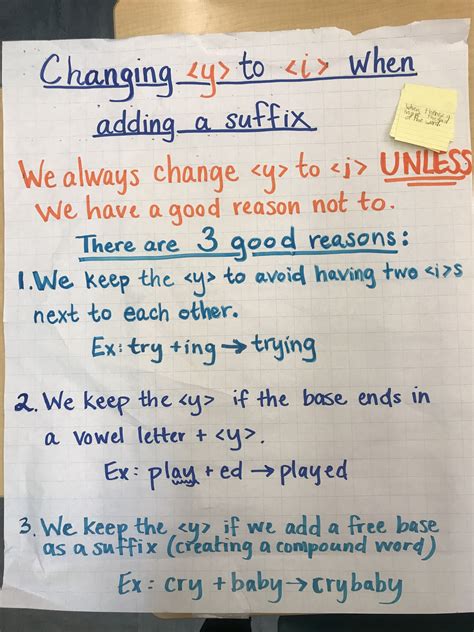 Changing <y> to <i> when
adding a suffix
We always change <y> to <i> UNLESS
We have a good reason not to.
There are 3 good reasons:
1. We keep the <y> to avoid having two <i>s
next to each other.
Ex: try + ing → trying
2. We keep the <y> if the base ends in
a vowel letter + <y>.
Ex: play + ed → played
3. We keep the <y> if we add a free base
as a suffix (creating a compound word)
Ex: cry + baby → crybaby